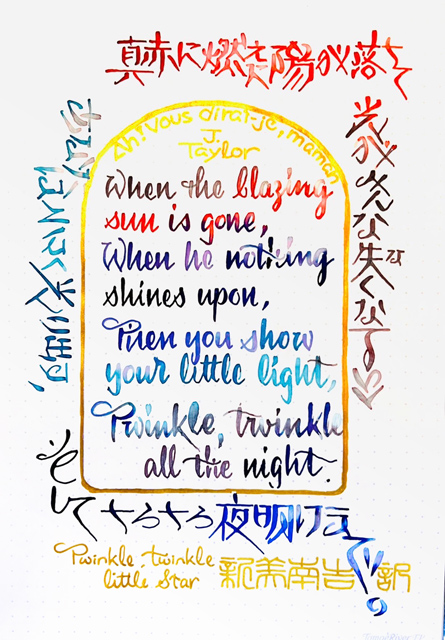 真赤に燃えた陽が落ちて
光がみんな失くな
Ah! Vous dirai-je, maman
J.
Taylor
When the blazing
sun is gone,
When he nothing
shines upon,
Then you show
your little light,
Twinkle, twinkle
all the night.
そして
きらきら夜明け
Twinkle, twinkle
little Star
新美南吉 訳